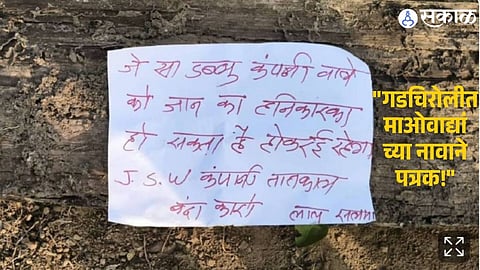 सकाळ
जे सी डब्लु कंपनी वाले
को जान का हानिकारका
हो सकता है होकरई रहेगा
J.S.W कंपनी तातकाल
बंदा करो लाल सलाम
"गडचिरोलीत
माओवाद्यां
च्या नावाने
पत्रक!"